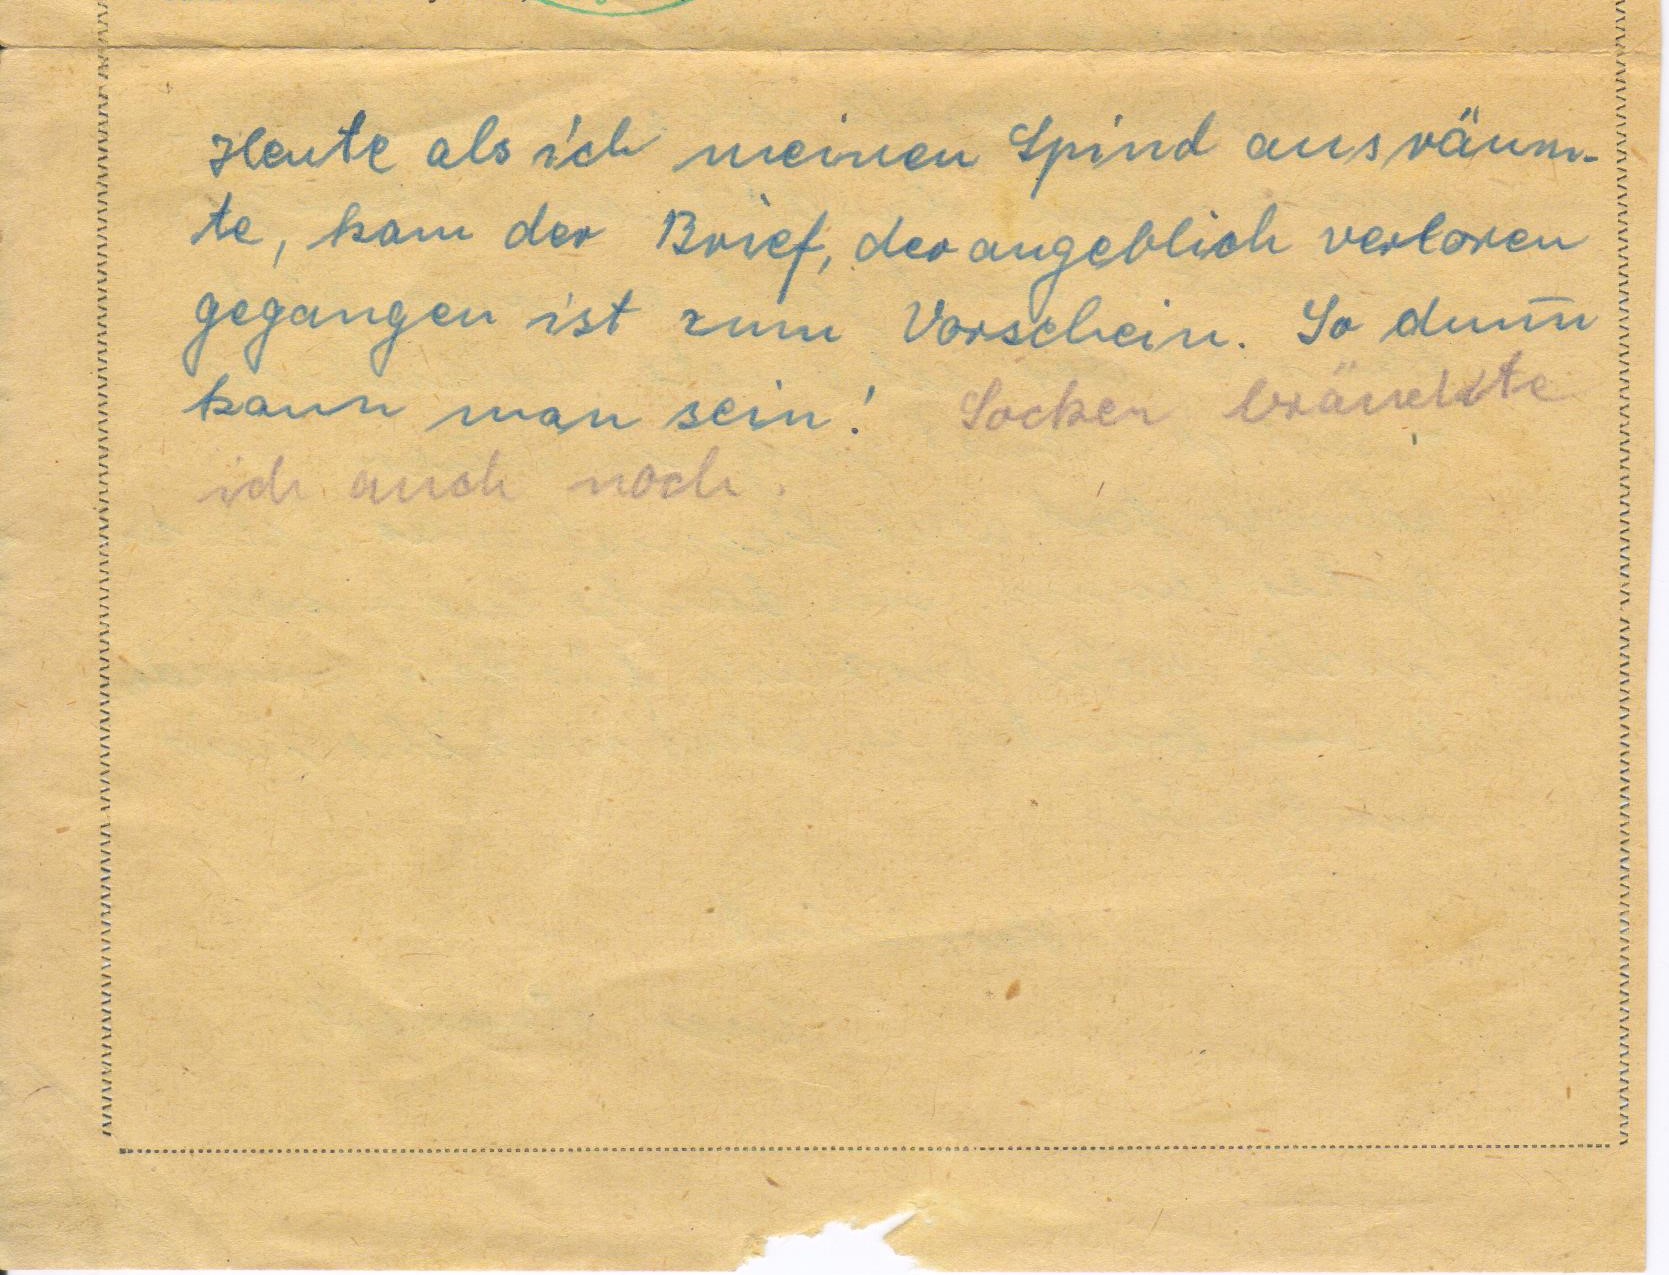 Heute als ich meinen Spind ausräum-
te, kam der Brief, der angeblich verloren
gegangen ist zum Vorschein. So dum̄
kann man sein! Socken bräuchte
ich auch noch.